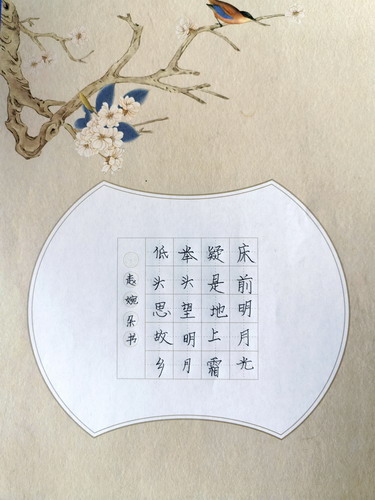 床前明月光
疑是地上霜
举头望明月
低头思故乡
婉朵书